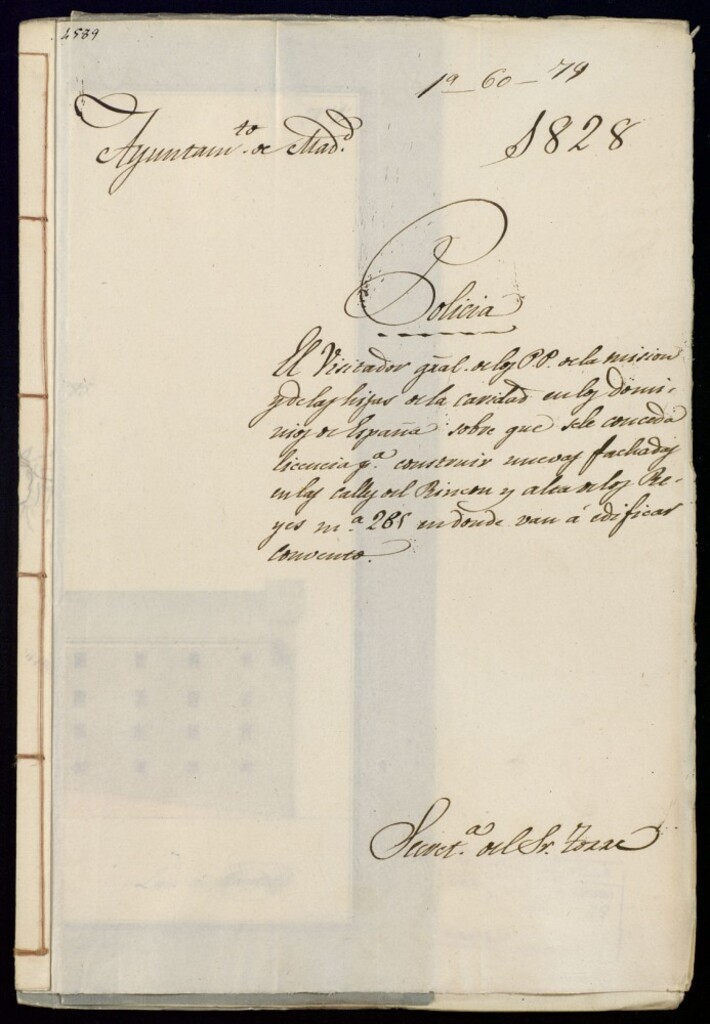 4589
1ª - 60 - 79
Ayuntam.to de Mad.d
1828
Policia
El Visitador gral. de los PP. de la mision
y de las hijas de la caridad en los domi-
nios de España sobre que se le conceda
licencia p.a construir nuevas fachadas
en las calles del Rincon y alta de los Re-
yes m.a 285 en donde van á edificar
convento.
Secret.a del Sr. Torre